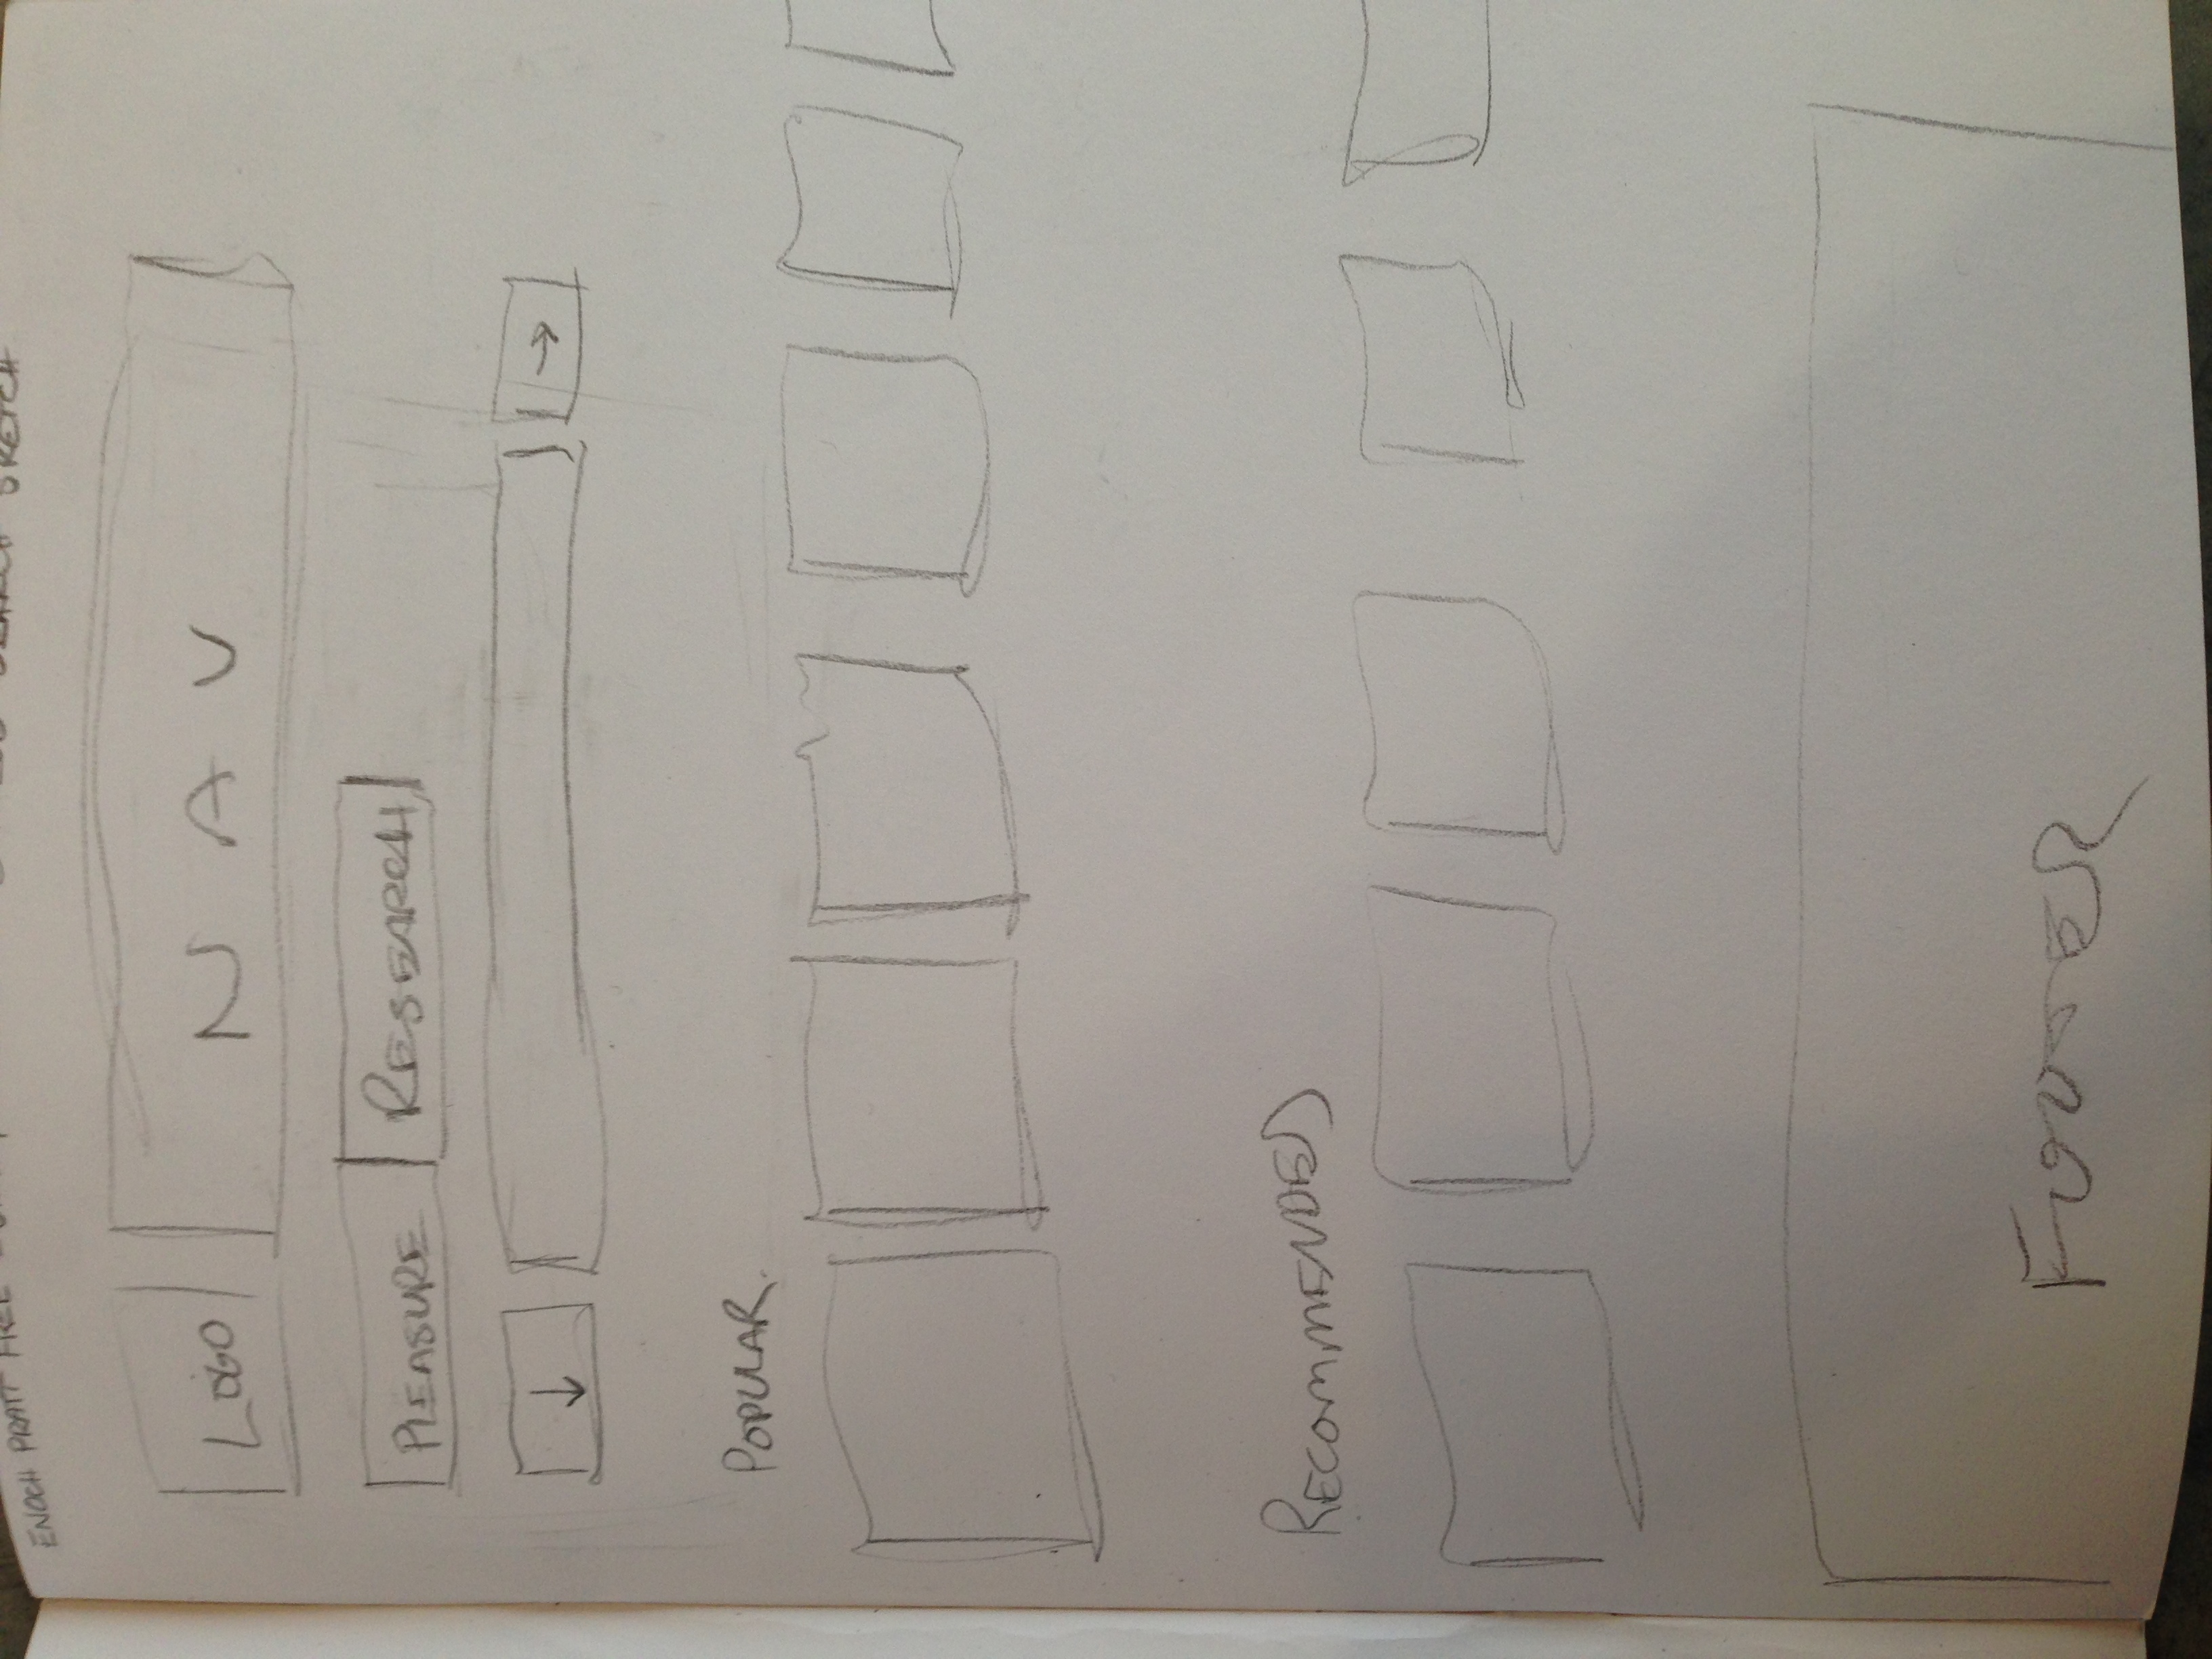 ENOCH PRATT FREE SEARCH SKETCH
LOGO NAV
PLEASURE RESEARCH
↓ →
POPULAR
RECOMMENDED
FOOTER